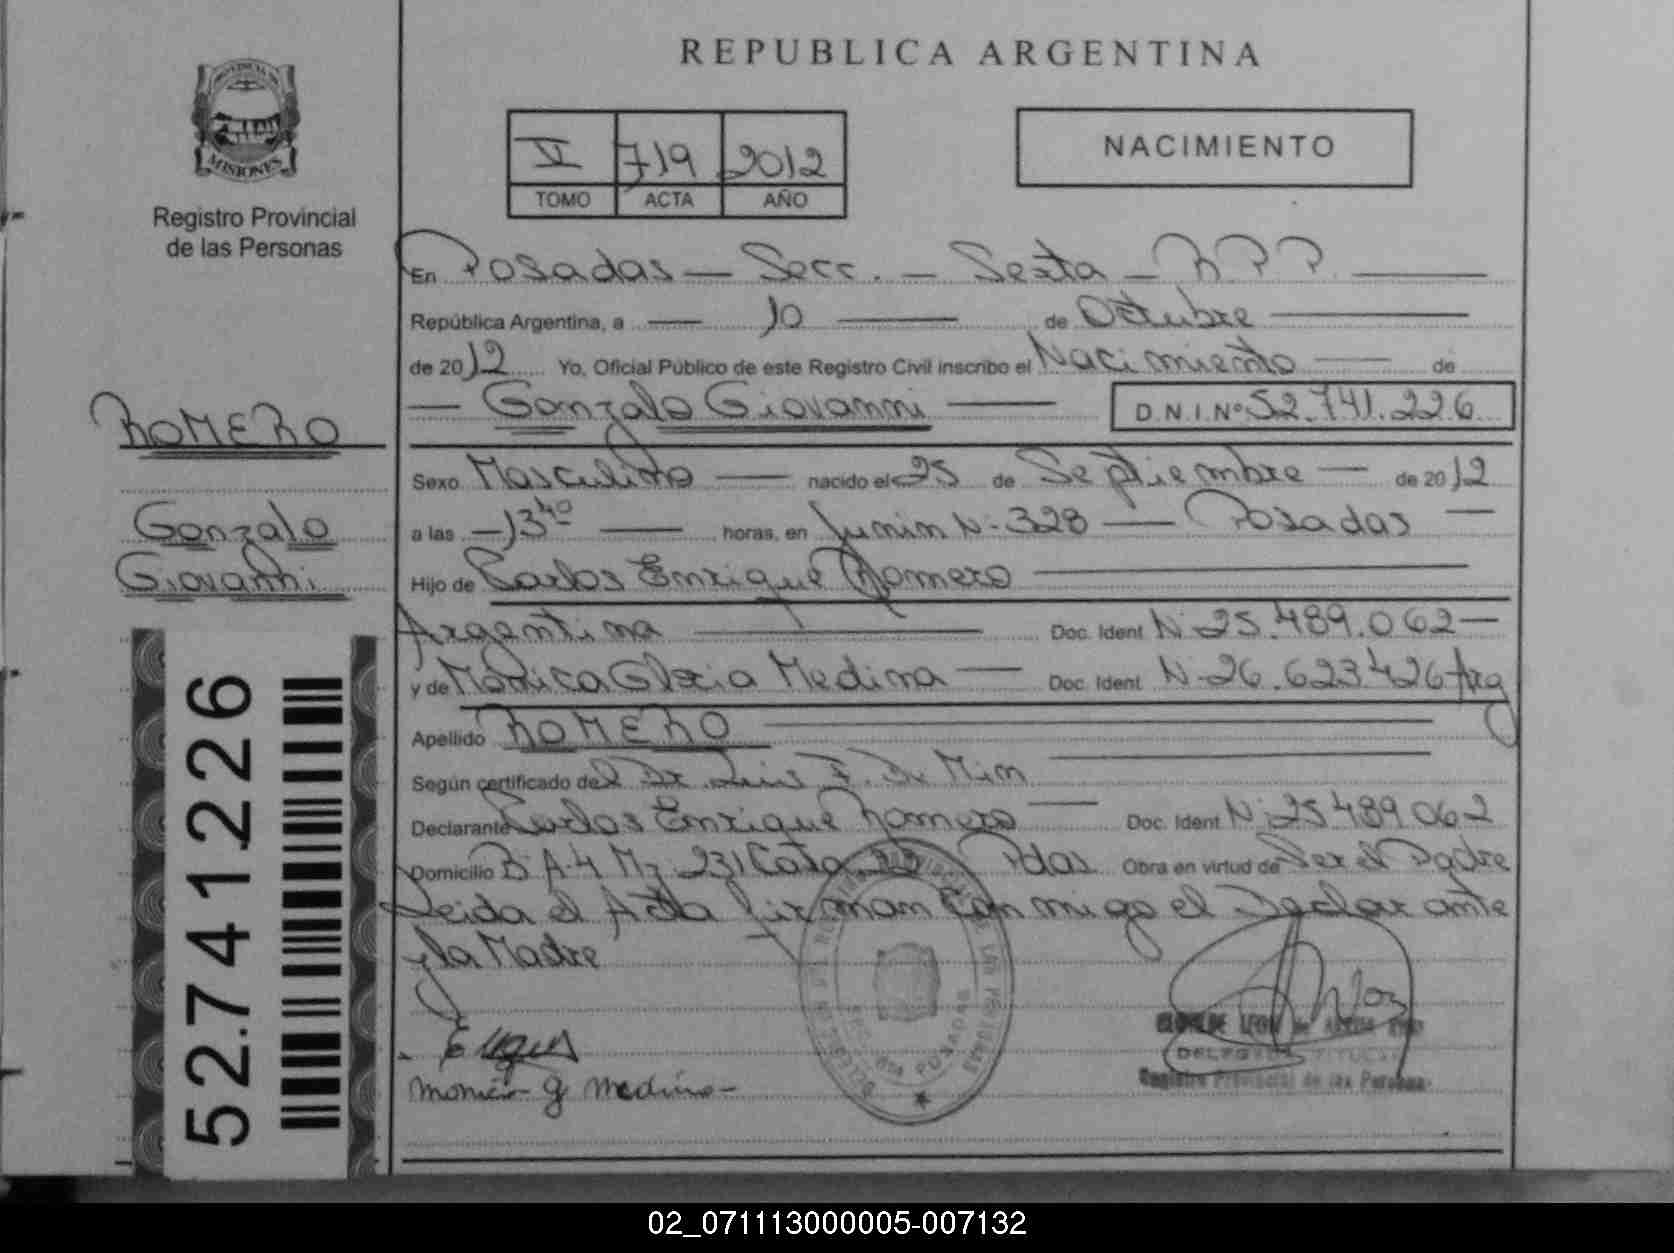 REPUBLICA ARGENTINA
PROVINCIA DE
MISIONES
Registro Provincial
de las Personas
V 719 2012
TOMO ACTA AÑO
NACIMIENTO
En Posadas — Secc. — Sexta — R P P.
República Argentina, a — 10 — de Octubre —
de 2012 Yo, Oficial Público de este Registro Civil inscribo el Nacimiento — de
— Gonzalo Giovanni — D.N.I.Nº 52.741.226
ROMERO
Gonzalo
Giovanni
Sexo Masculino — nacido el 25 de Septiembre — de 2012
a las — 13 40 — horas, en Junin N- 328 — Posadas —
Hijo de Carlos Enrique Romero —
Argentina — Doc. Ident N- 25.489.062 —
y de Mónica Gloria Medina — Doc. Ident N- 26.623.426 Arg
Apellido ROMERO —
Según certificado del Dr. Luis F. De
Declarante Carlos Enrique Romero — Doc. Ident N- 25 489 062
Domicilio B A-4 Mz 231 Casa Pdas Obra en virtud de Ser el Padre
Leida el Acta firman conmigo el Declarante
y la Madre
Monica G Medina -
POSADAS
DELEGADA TITULAR
Registro Provincial de las Personas
52.741.226
02_071113000005-007132